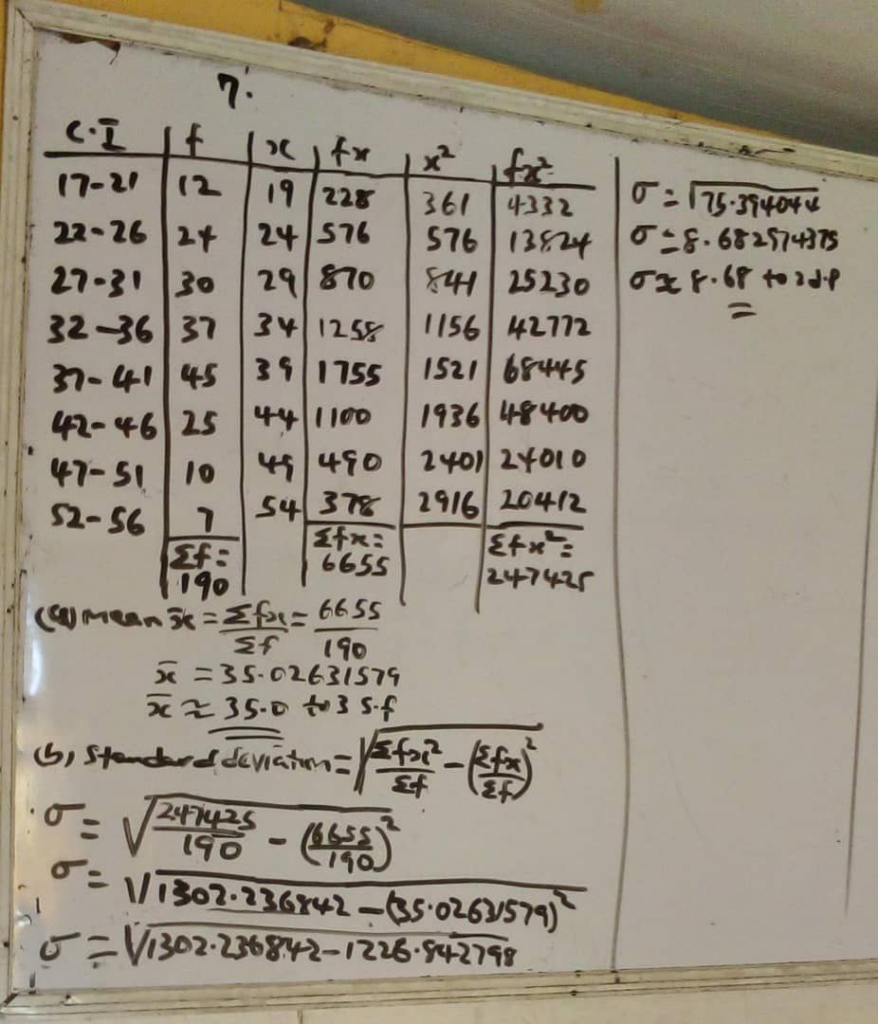 7.
C.I f x fx x² fx²
17-21 12 19 228 361 4332
22-26 24 24 576 576 13824
27-31 30 29 870 841 25230
32-36 37 34 1258 1156 42772
37-41 45 39 1755 1521 68445
42-46 25 44 1100 1936 48400
47-51 10 49 490 2401 24010
52-56 7 54 378 2916 20412
Σf= 190 Σfx= 6655 Σfx²= 247425
(a) Mean x̄ = Σfx/Σf = 6655/190
x̄ = 35.02631579
x̄ ≈ 35.0 to 3 s.f
(b) Standard deviation = √(Σfx²/Σf - (Σfx/Σf)²)
σ = √(247425/190 - (6655/190)²)
σ = √(1302.236842 - (35.02631579)²)
σ = √(1302.236842 - 1226.842798)
σ = √75.394044
σ = 8.682974375
σ ≈ 8.68 to 2 d.p